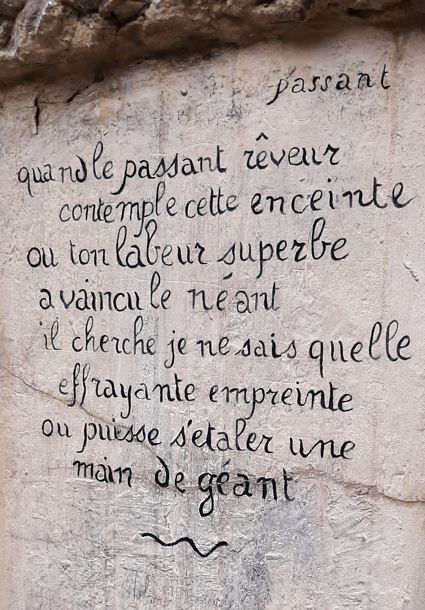 passant
quand le passant rêveur
contemple cette enceinte
ou ton labeur superbe
a vaincu le néant
il cherche je ne sais quelle
effrayante empreinte
ou puisse s'etaler une
main de géant